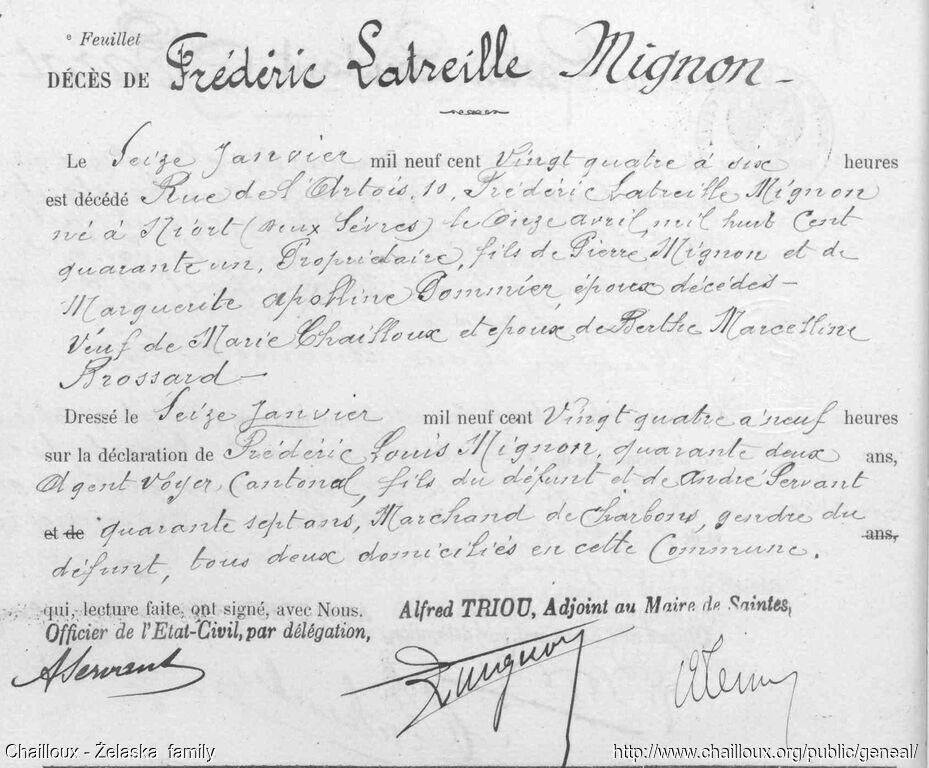 ° Feuillet
DÉCÈS DE Frédéric Latreille Mignon -
Le Seize Janvier mil neuf cent Vingt quatre à six heures
est décédé Rue de l'Artois, 10, Frédéric Latreille Mignon
né à Niort (Deux Sèvres) le Onze avril, mil huit Cent
quarante un, Propriétaire, fils de Pierre Mignon et de
Marguerite Apolline Pommier, époux décédés -
Veuf de Marie Chailloux et époux de Berthe Marcelline
Brossard -
Dressé le Seize Janvier mil neuf cent Vingt quatre à neuf heures
sur la déclaration de Frédéric Louis Mignon, quarante deux ans,
Agent Voyer Cantonal, fils du défunt et de André Servant
et de quarante sept ans, Marchand de Charbons, gendre du ans,
défunt, tous deux domiciliés en cette Commune.
qui, lecture faite, ont signé, avec Nous. Alfred TRIOU, Adjoint au Maire de Saintes,
Officier de l'Etat-Civil, par délégation,
AServant Mignon
Chailloux - Želaska family http://www.chailloux.org/public/geneal/